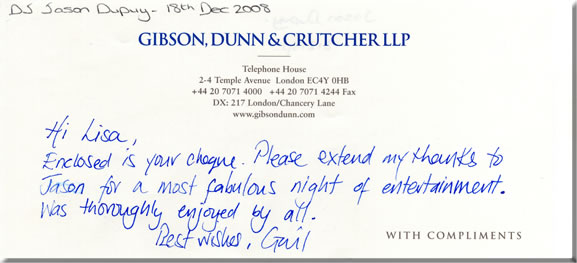 DJ Jason Dupuy - 18th Dec 2008
GIBSON, DUNN & CRUTCHER LLP
Telephone House
2-4 Temple Avenue London EC4Y 0HB
+44 20 7071 4000 +44 20 7071 4244 Fax
DX: 217 London/Chancery Lane
www.gibsondunn.com
Hi Lisa,
Enclosed is your cheque. Please extend my thanks to
Jason for a most fabulous night of entertainment.
Was thoroughly enjoyed by all.
Best wishes, Gail
WITH COMPLIMENTS